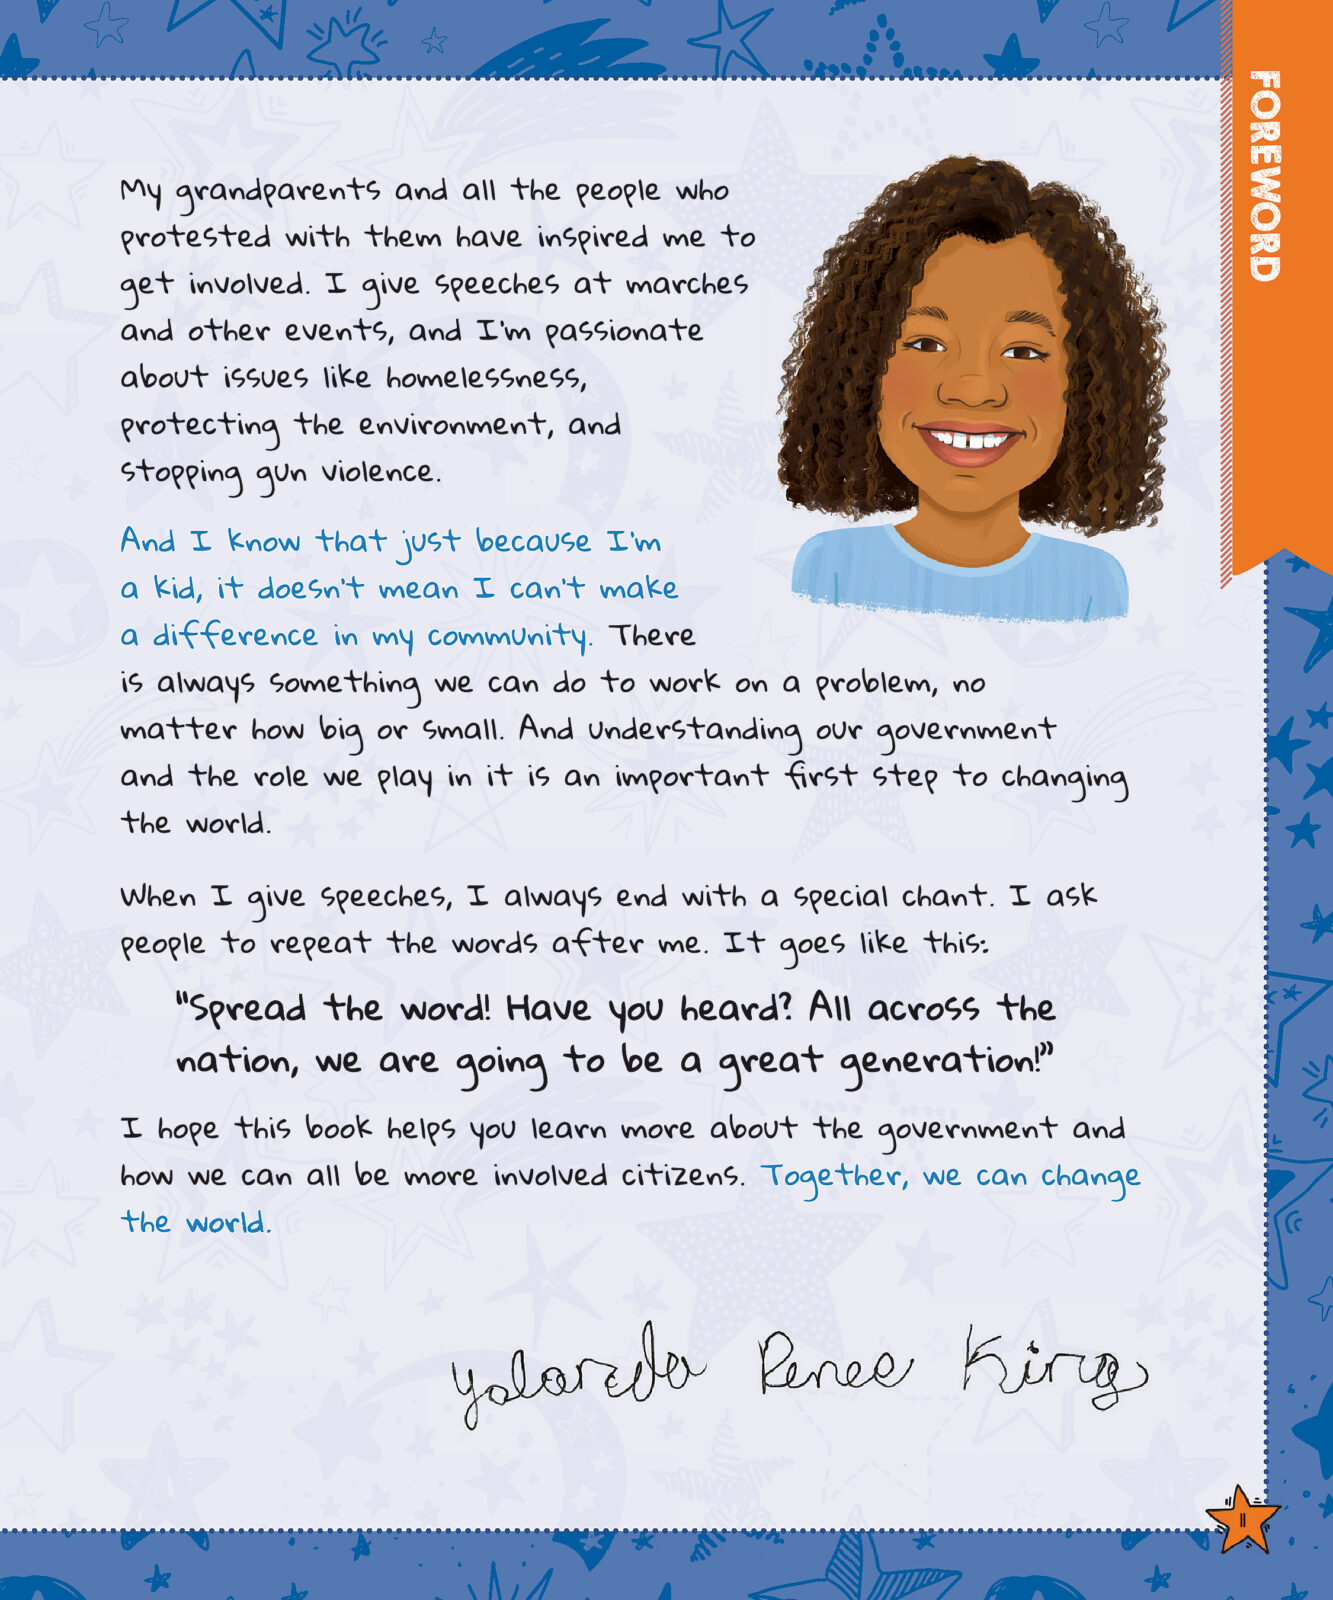 FOREWORD
My grandparents and all the people who
protested with them have inspired me to
get involved. I give speeches at marches
and other events, and I'm passionate
about issues like homelessness,
protecting the environment, and
stopping gun violence.
And I know that just because I'm
a kid, it doesn't mean I can't make
a difference in my community. There
is always something we can do to work on a problem, no
matter how big or small. And understanding our government
and the role we play in it is an important first step to changing
the world.
When I give speeches, I always end with a special chant. I ask
people to repeat the words after me. It goes like this:
"Spread the word! Have you heard? All across the
nation, we are going to be a great generation!"
I hope this book helps you learn more about the government and
how we can all be more involved citizens. Together, we can change
the world.
Yolanda Renee King
11